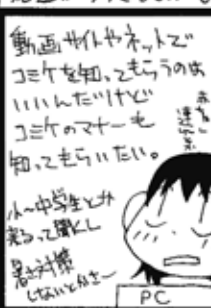 動画サイトやネットで
コミケを知ってもらうのは
いいんだけど
コミケのマナーも
知ってもらいたい。
小〜中学生とか
暑さ対策
しないとかさ〜
PC